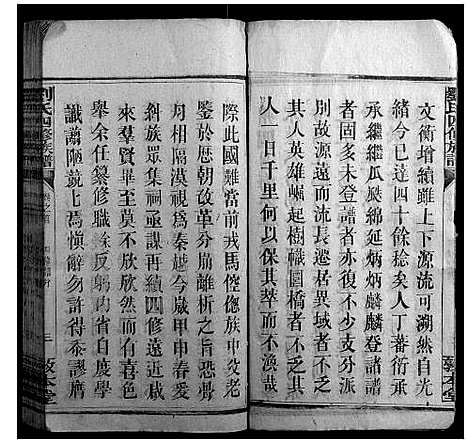 劉氏四修族譜
文衛增續雖上下源流可溯然自光
緒今已達四十餘稔矣人丁蕃衍承
承繼繼瓜瓞綿延炳炳麟麟登諸譜
者固多未登譜者亦復不少支分派
別故源遠而流長遷居異域者不乏
其人英雄崛起樹幟圜橋者不乏其
人一日千里何以保其萃而不渙哉
敦本堂
際此國難當前戎馬倥傯族中父老
鑒於歷朝改革分崩離析之旨恐骨
肉相隔漠視為秦越今歲甲申春爰
糾族眾集祠亟謀再續四修遠近咸
來羣賢畢至莫不欣欣然而有喜色
舉余任纂修職余反躬內省自度學
識譾陋兢上焉慎辭勿許得忝謬膺
劉氏四修族譜
卷之首
三
敦本堂